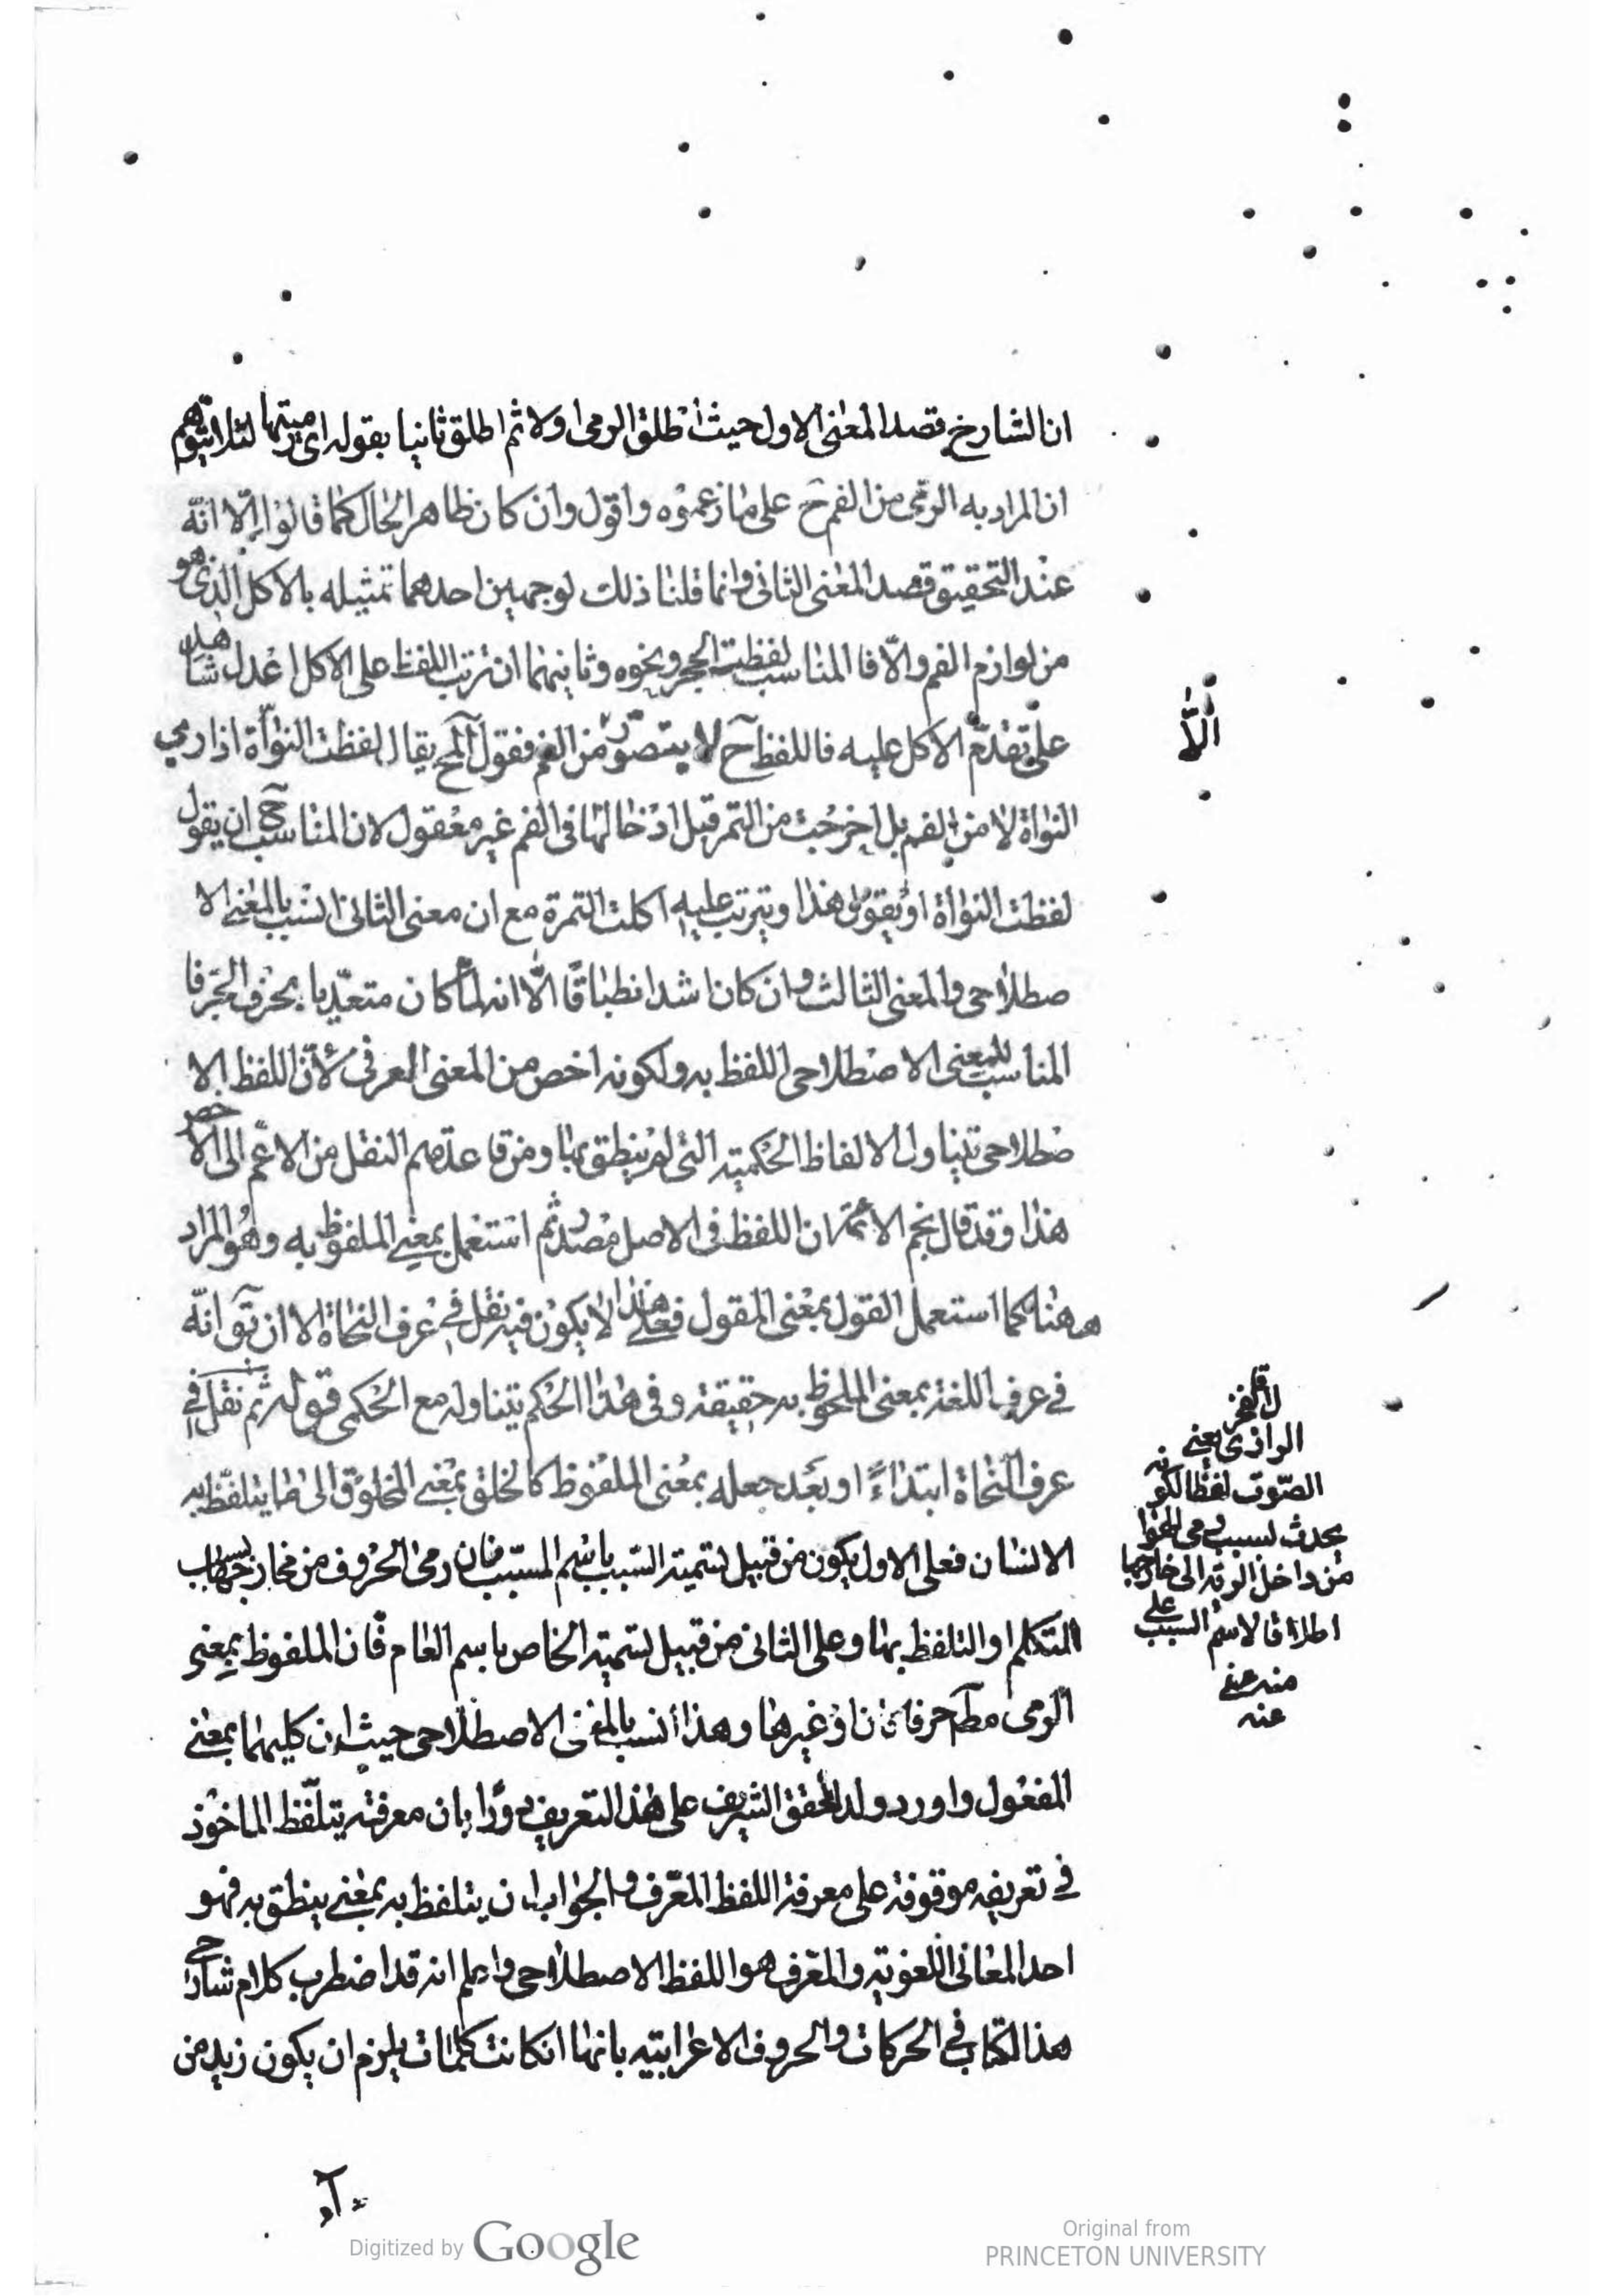 ان الشارح قصد المعنى الاول حيث اطلق الرمى اولا ثم اطلق ثانيا بقوله اى رميتها لئلا يتوهم
ان المراد به الرمى من الفم ح على ما زعموه واقول وان كان ظاهر الحال كما قالوا الا انه
عند التحقيق قصد المعنى الثانى وانما قلنا ذلك لوجهين احدهما تمثيله بالاكل الذى هو
من لوازم الفم والا فالمناسب لفظت الحجر ونحوه وثانيهما ان ترتب اللفظ على الاكل اعدل شاهد
على تقدم الاكل عليه فاللفظ ح لا يتصور من الفم فقول يقال لفظت النواة اذا رمى
النواة لا من الفم بل اخرجت من التمر قبل ادخالها فى الفم غير معقول لان المناسب ح ان يقول
لفظت النواة او يقول هذا ويترتب عليه اكلت التمرة مع ان معنى الثانى انسب بالمعنى الا
صطلاحى والمعنى الثالث وان كان اشد انطباقا الا انه لما كان متعديا بحرف الجر فا
المناسب للمعنى الاصطلاحى اللفظ به ولكونه اخص من المعنى العرفى لأن اللفظ الا
صطلاحى يتناول الالفاظ الحكمية التى لم ينطق بها ومن قاعدتهم النقل من الاعم الى الاخص
هذا وقد قال نجم الائمة ان اللفظ فى الاصل مصدر ثم استعمل بمعنى الملفوظ به وهو المراد
ههنا كما استعمل القول بمعنى المقول فعلى هذا لا يكون فيه نقل فى عرف النحاة الا ان يق انه
فى عرف اللغة بمعنى الملحوظ به حقيقة وفى هذا الحكم يتناوله مع الحكمى قوله ثم نقل فى
عرف النحاة ابتداءً او بعد جعله بمعنى الملفوظ كالخلق بمعنى المخلوق الى ما يتلفظ به
الانسان فعلى الاول يكون من قبيل تسمية السبب باسم المسبب فان رمى الحروف من مخارجها بسبب
المتكلم او التلفظ بها وعلى الثانى من قبيل تسمية الخاص باسم العام فان الملفوظ بمعنى
الرمى مط حرفا كان او غيرها وهذا أنسب بالمعنى الاصطلاحى حيث ان كليهما بمعنى
المفعول واورد ولد المحقق الشريف على هذا التعريف دورا بان معرفة يتلفظ الماخوذ
فى تعريفه موقوفة على معرفة اللفظ المعرف والجواب ان يتلفظ به بمعنى ينطق به فهو
احد المعانى اللغوية والمعرف هو اللفظ الاصطلاحى واعلم انه قد اضطرب كلام شارحى
هذا الكتاب فى الحركات والحروف الاعرابية بانها ان كانت كلمات يلزم ان يكون زيد من
إلّا
قال الفخر
الرازى يعنى
الصوت لفظا لكونه
يحدث بسبب رمى الهوا
من داخل الرية الى خارجها
اطلاقا لاسم السبب على
منه عفى
عنه
Digitized by Google
Original from
PRINCETON UNIVERSITY